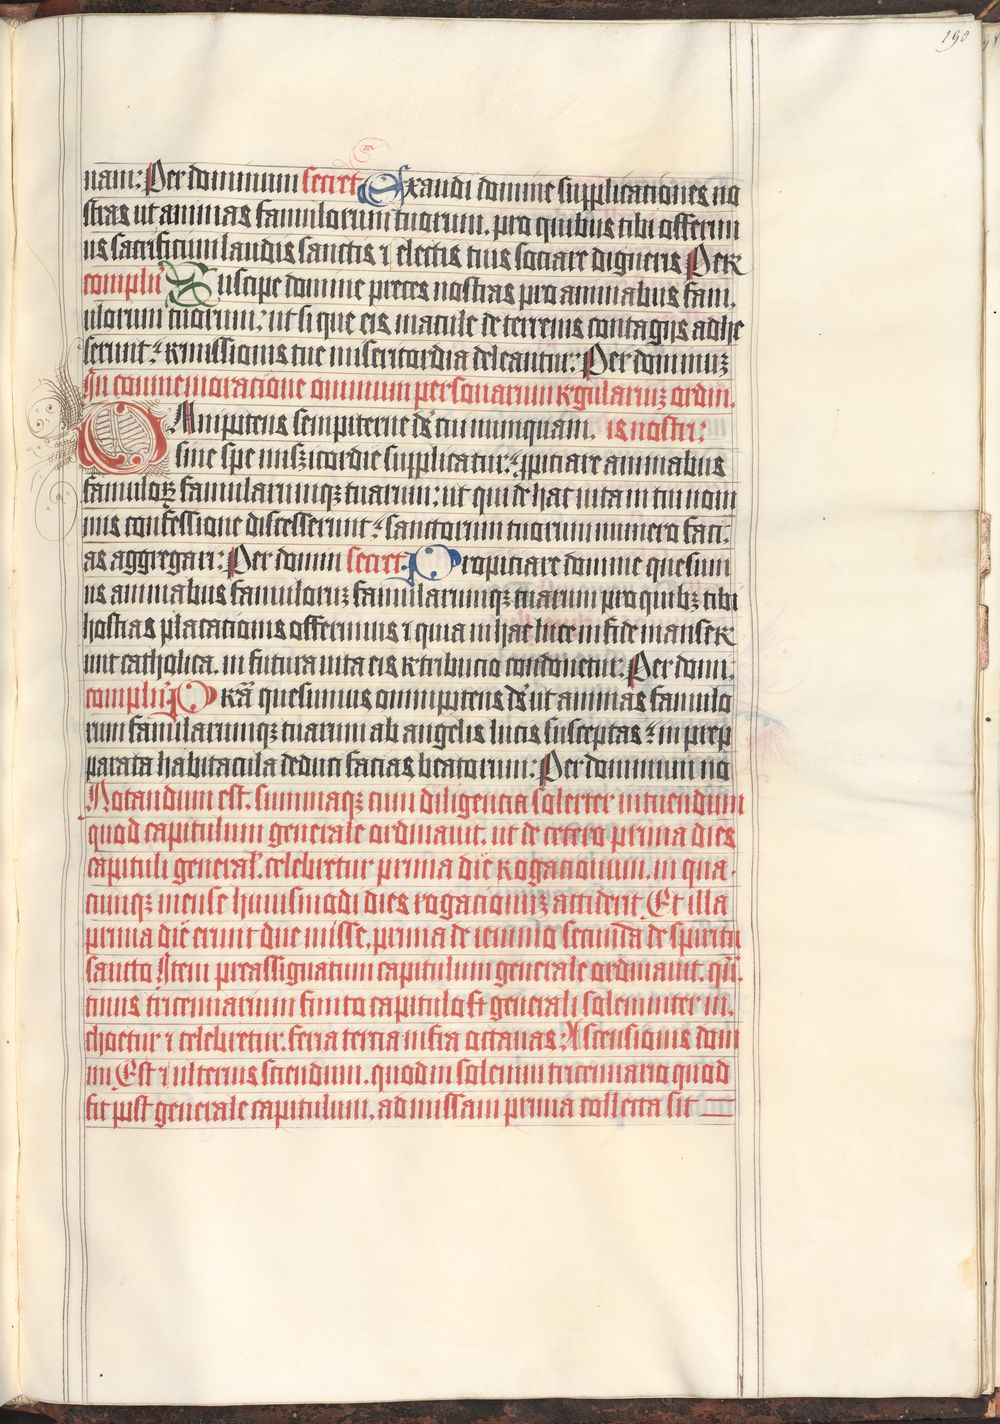 190
nam: Per dominum secret Exaudi domine supplicationes no
stras ut animas famulorum tuorum, pro quibus tibi offerim
us sacrificium laudis sanctis ⁊ electis tuis sociare digneris Per
complen̄ Suscipe domine preces nostras pro animabus fam,
ulorum tuorum: ut si que eis macule de terrenis contagijs adhe
serunt: remissionis tue misericordia deleantur: Per dominuꝫ
In commemoracione omnium personarum regulariuꝫ ordin,
OMnipotens sempiterne ds̄ cui nunquam, is nostri:
sine spe mis̄ꝫicordie supplicatur: ꝓpiciare animabus
famuloꝝ famularumqꝫ tuarum: ut qui de hac uita in tui nom
inis confessione discesserunt: sanctorum tuorum numero faci:
as aggregari: Per domin secret: Propiciare domine quesum
us animabus famuloruꝫ famularumqꝫ tuarum pro quibꝫ tibi
hostias placationis offerimus ⁊ quia in hac luce in fide manser
unt catholica, in futura uita eis retribucio condonetur: Per domi:
complen̄: Pr̄a quesumus omnipotens ds̄ ut animas famulo
rum famularumqꝫ tuarum ab angelis lucis susceptas: in prep
parata habitacula deduci facias beatorum: Per dominum no
Notandum est, summaqꝫ cum diligencia solerter intuendum
quod capitulum generale ordinauit, ut de cetero prima dies
capituli general', celebretur prima die Rogationum, in qua,
cunqꝫ mense huiusmodi dies rogacionuꝫ acciderit, Et illa
prima die erunt due misse, prima de ieiunio secunda de spiritu
sancto Item preassignatum capitulum generale ordinauit, qr̄:
tinus tricennarium finito capitulo ft generali solemniter in,
choetur ⁊ celebretur, feria tercia infra octauas, Ascensionis dom
ini, Est ⁊ ulterius sciendum, quod in solenni tricennario quod
fit post generale capitulum, ad missam prima collecta sit